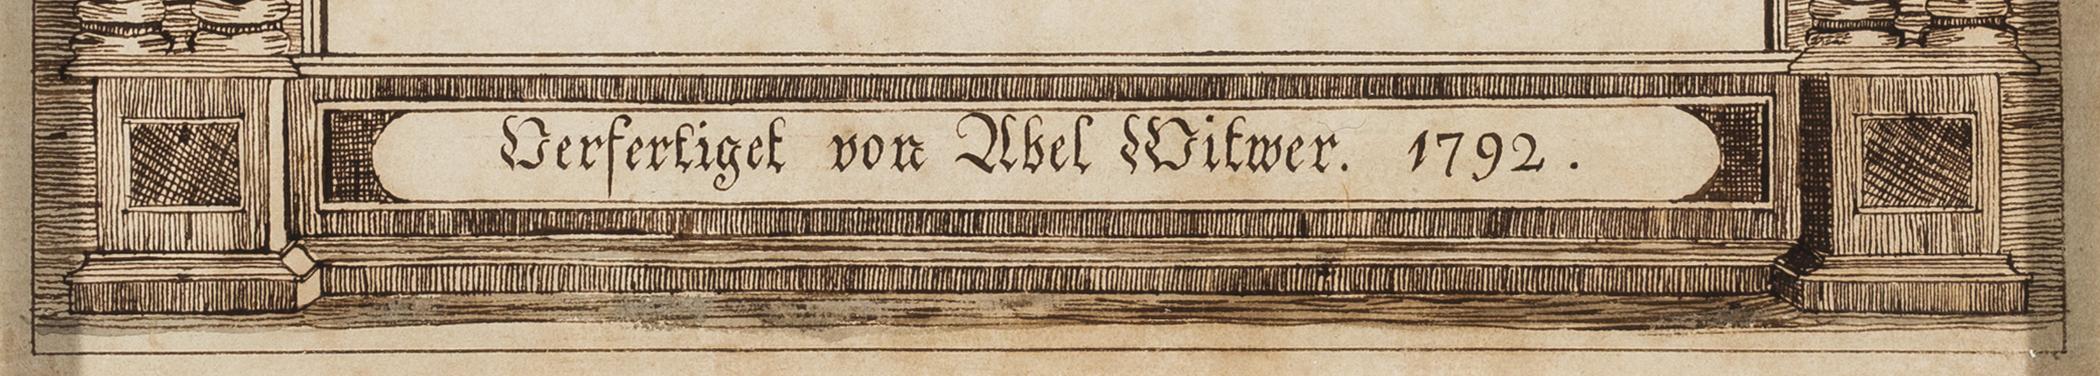 Verfertiget von Abel Witwer. 1792.